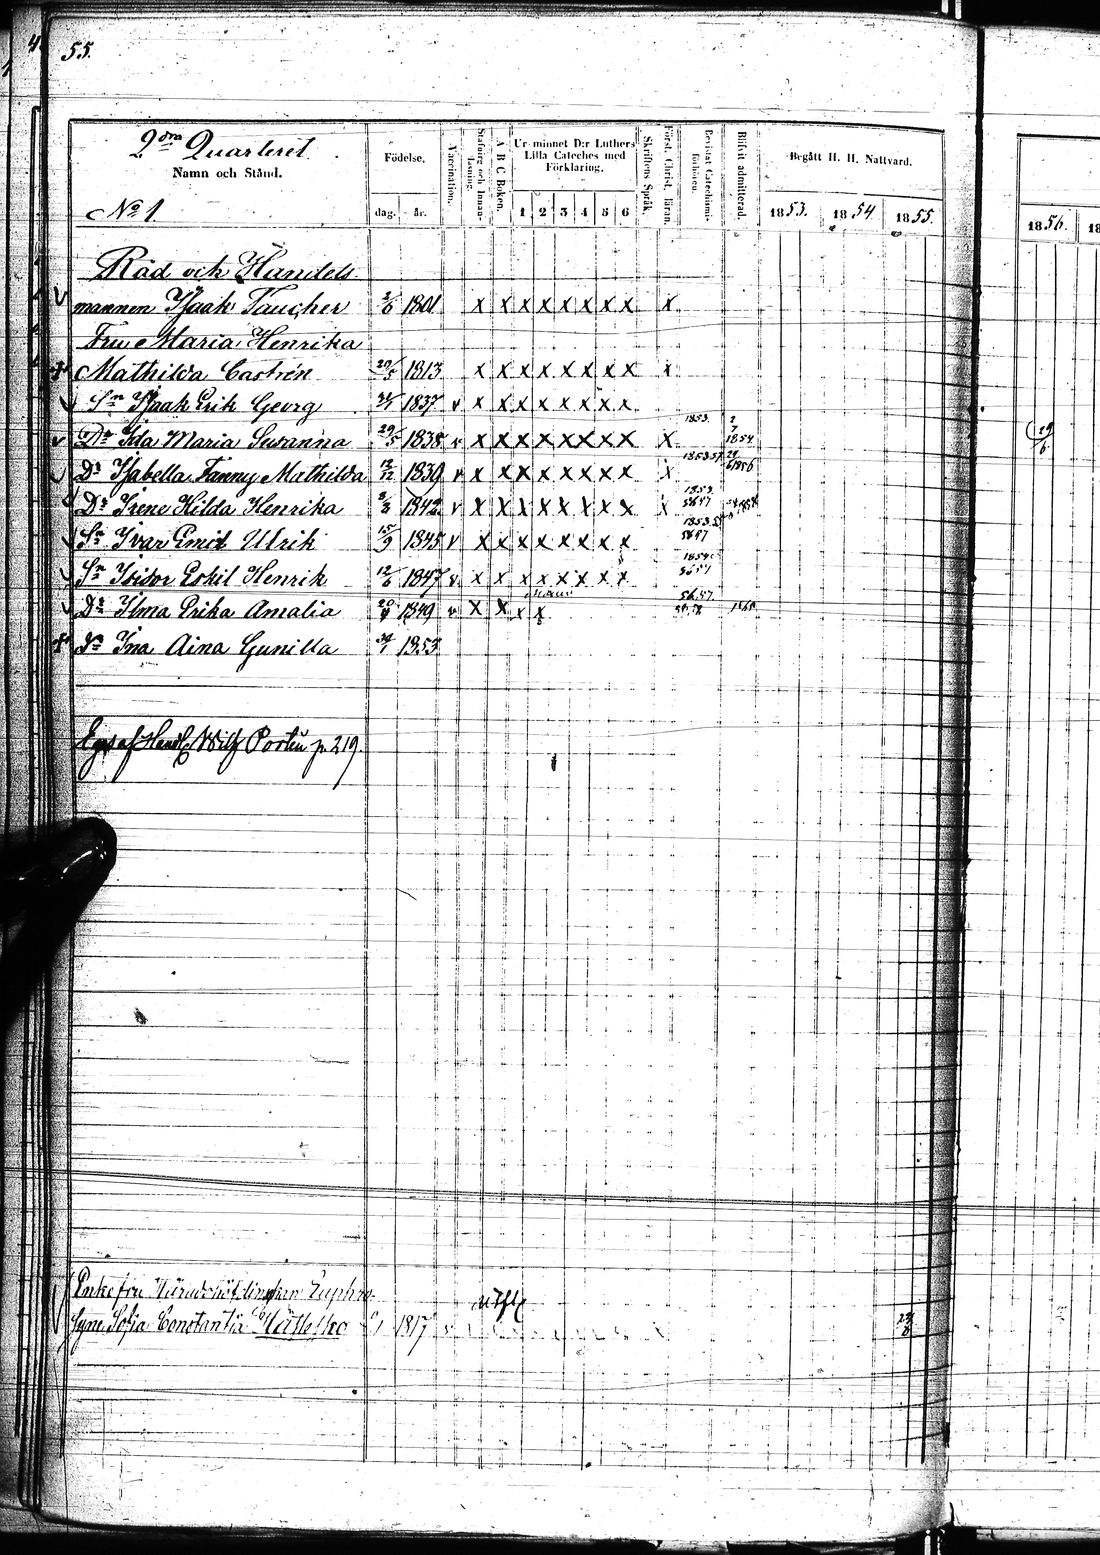 55.
2dra Quarteret.
Namn och Stånd.
No 1.
Födelse.
dag. år.
Vaccination.
Stafning och Innanläsning.
A B C Boken.
Ur minnet D:r Luthers Lilla Cateches med Förklaring.
1 2 3 4 5 6
Skriftens Språk.
Förest. Christ. läran.
Bevistat Catechismi-förhören.
Blifvit admitterad.
Begått H. H. Nattvard.
1853. 1854. 1855.
1856.
Råd och Handels
mannen Isaak Taucher 2/6 1801 x x x x x x x x x
Fru Maria Henrika
Mathilda Castrén 20/5 1813 x x x x x x x x x
Sn Isaak Erik Georg 1837 v x x x x x x x x
Dr Ida Maria Susanna 29/5 1838 v x x x x x x x x x 1853. 2/7 1854
Dr Isabella Fanny Mathilda 12/12 1839 v x x x x x x x x x 1856
Dr Irene Hilda Henrika 1842 v x x x x x x x x x 1853.
Sn Ivar Emil Ulrik 15/9 1845 v x x x x x x x x
Sn Isidor Eskil Henrik 12/6 1847 v x x x x x x x x
Dr Ilma Erika Amalia 1849 v x x x x 56.57.
Dr Ina Aina Gunilla 1853
Eges af Handl. Wilh Portin p. 219.
Enkefru Häradshöfdingskan Euphro-
syne Sofia Constantia 1817 v
29/6